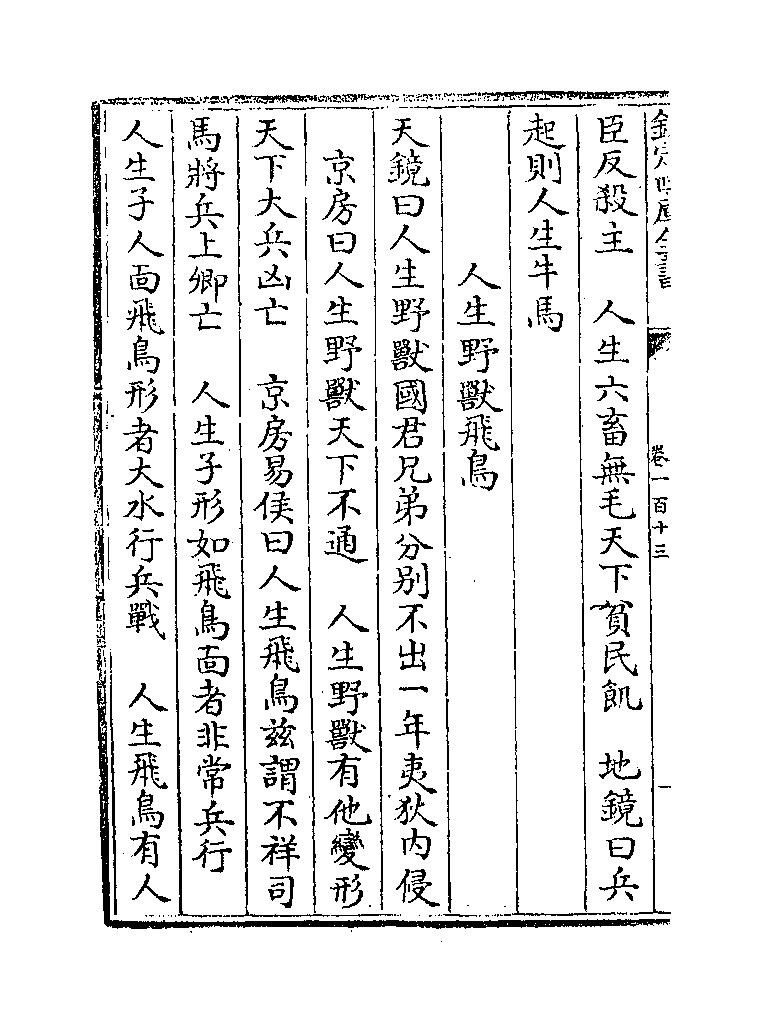 欽定四庫全書
卷一百十三
臣反殺主　人生六畜無毛天下貧民飢　地鏡曰兵
起則人生牛馬
人生野獸飛鳥
天鏡曰人生野獸國君兄弟分別不出一年夷狄内侵
京房曰人生野獸天下不通　人生野獸有他變形
天下大兵凶亡　京房易候曰人生飛鳥兹謂不祥司
馬將兵上卿亡　人生子形如飛鳥面者非常兵行
人生子人面飛鳥形者大水行兵戰　人生飛鳥有人